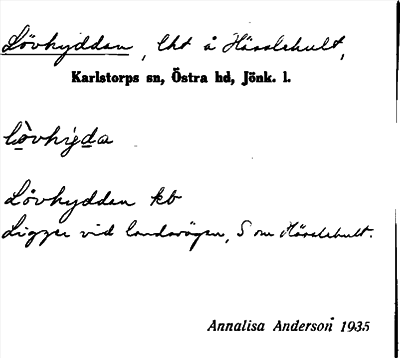 Lövhyddan, lht å Hässlehult,
Karlstorps sn, Östra hd, Jönk. l.
lòvhyda
Lövhyddan kb
Ligger vid landsvägen, S om Hässlehult.
Annalisa Anderson 1935